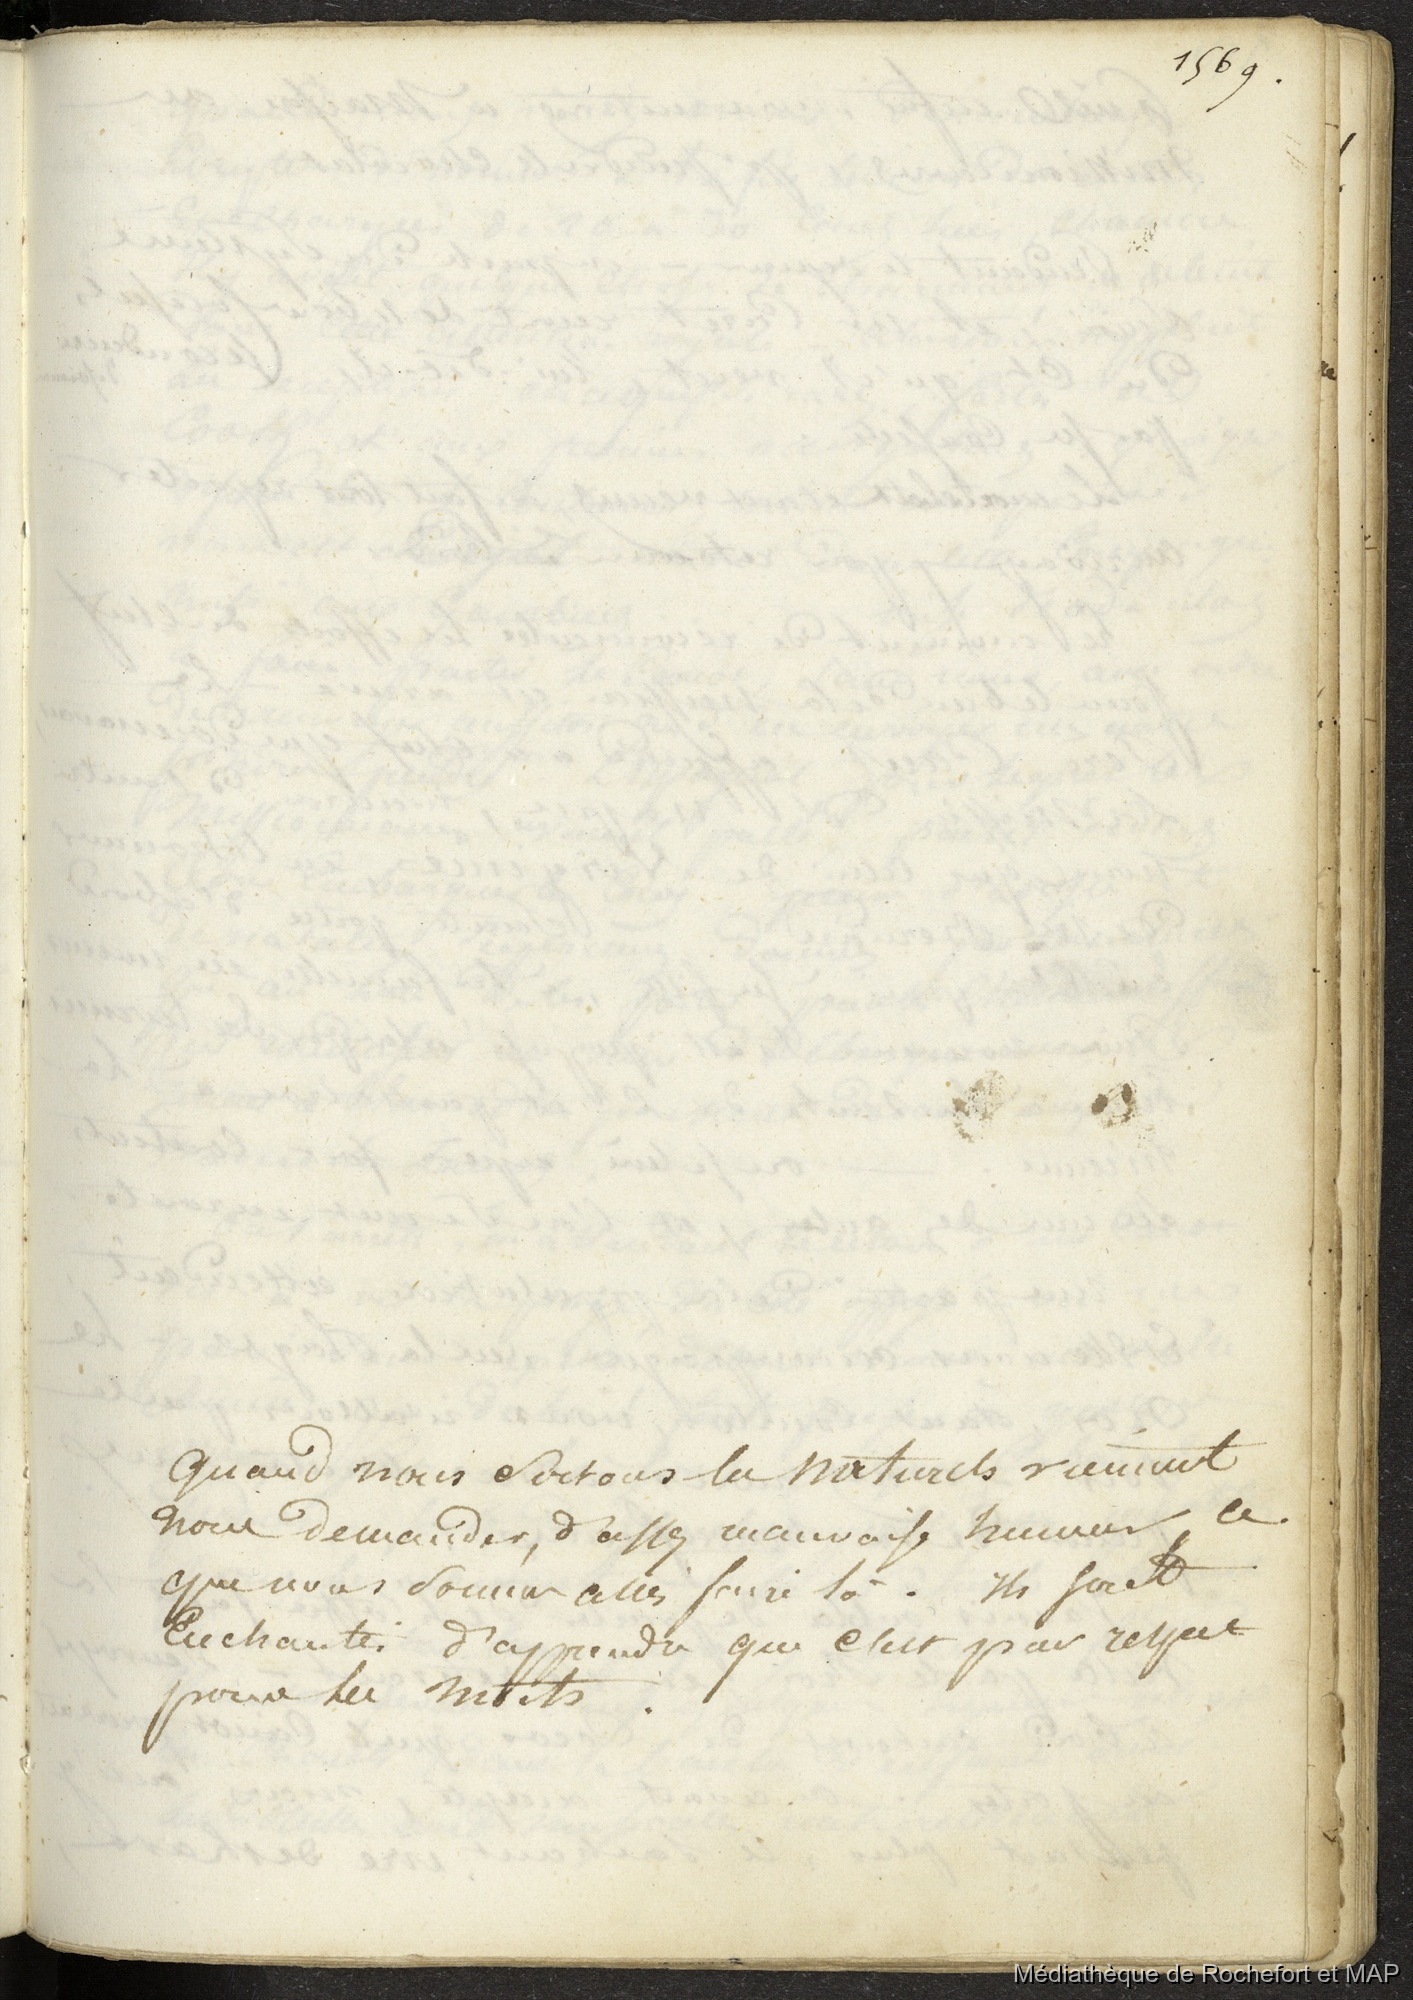 1569.
Quand nous sortons les naturels viennent
nous demander, d'assez mauvaise humeur, ce
que nous sommes allés faire là. Ils sont
Enchantés d'apprendre que c'est par respect
pour les morts.
Médiathèque de Rochefort et MAP